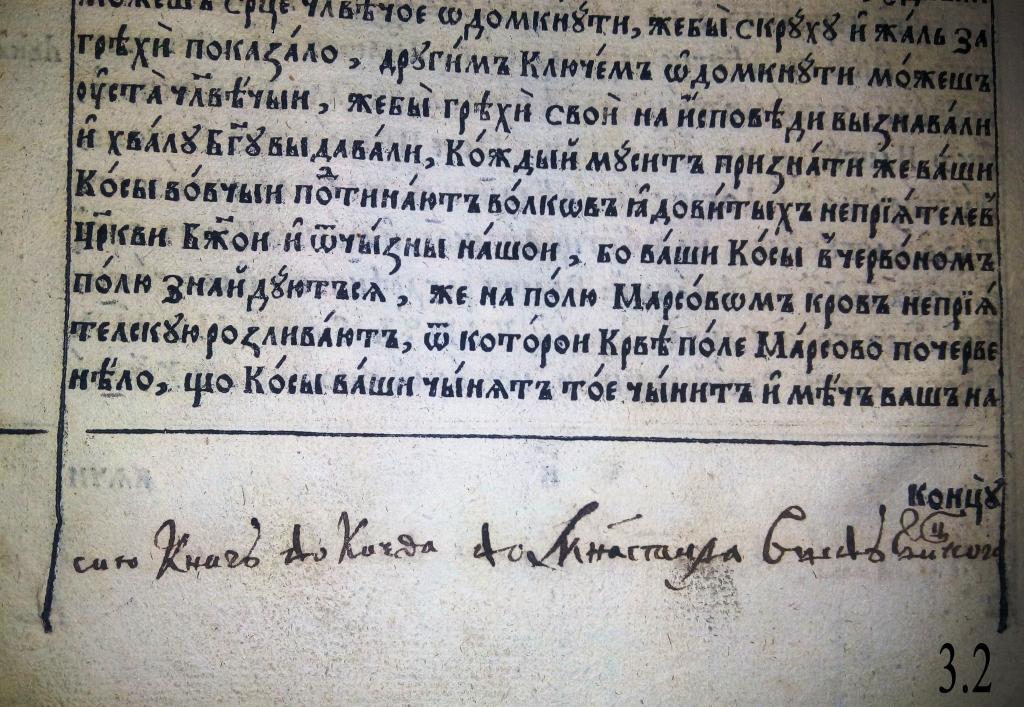 можешъ срце члвѣчое ѿдомкнꙋ́ти, жебы̀ скрꙋ́хꙋ и҆ жа́ль за
грѣхѝ показа́ло, дрꙋги́мъ Ключе́мъ ѿдомкнꙋ́ти мо́жешъ
оу҆ста̀ чл҃вѣ́чыи, жебы̀ грѣхѝ своѝ на и҆́сповѣди вызнава́ли
и҆ хва́лꙋ Бг҃ꙋ выдава́ли, Ко́ждый мꙋ́ситъ призна́ти же ва́ши
Ко́сы во́вчыи поⷣтина́ютъ во́лкѡвъ ꙗ҆дови́тыхъ непрїѧ́телей
Цр҃кви Бж҃ои и҆ ѿчы́зны на́шои, бо ва́ши Ко́сы в̾ черво́номъ
по́лю знайдꙋ́ютъсѧ, же на по́лю Марсо́вѡмъ кровъ непрїѧ́
телскꙋ́ю розлива́ютъ, ѿ кото́рои Крвѣ̀ по́ле Ма́рсово почерве
нѣ́ло, що Ко́сы ва́ши чы́нятъ то́е чы́нитъ и҆ ме́чъ вашъ на
концꙋ̀
сию Книгъ до